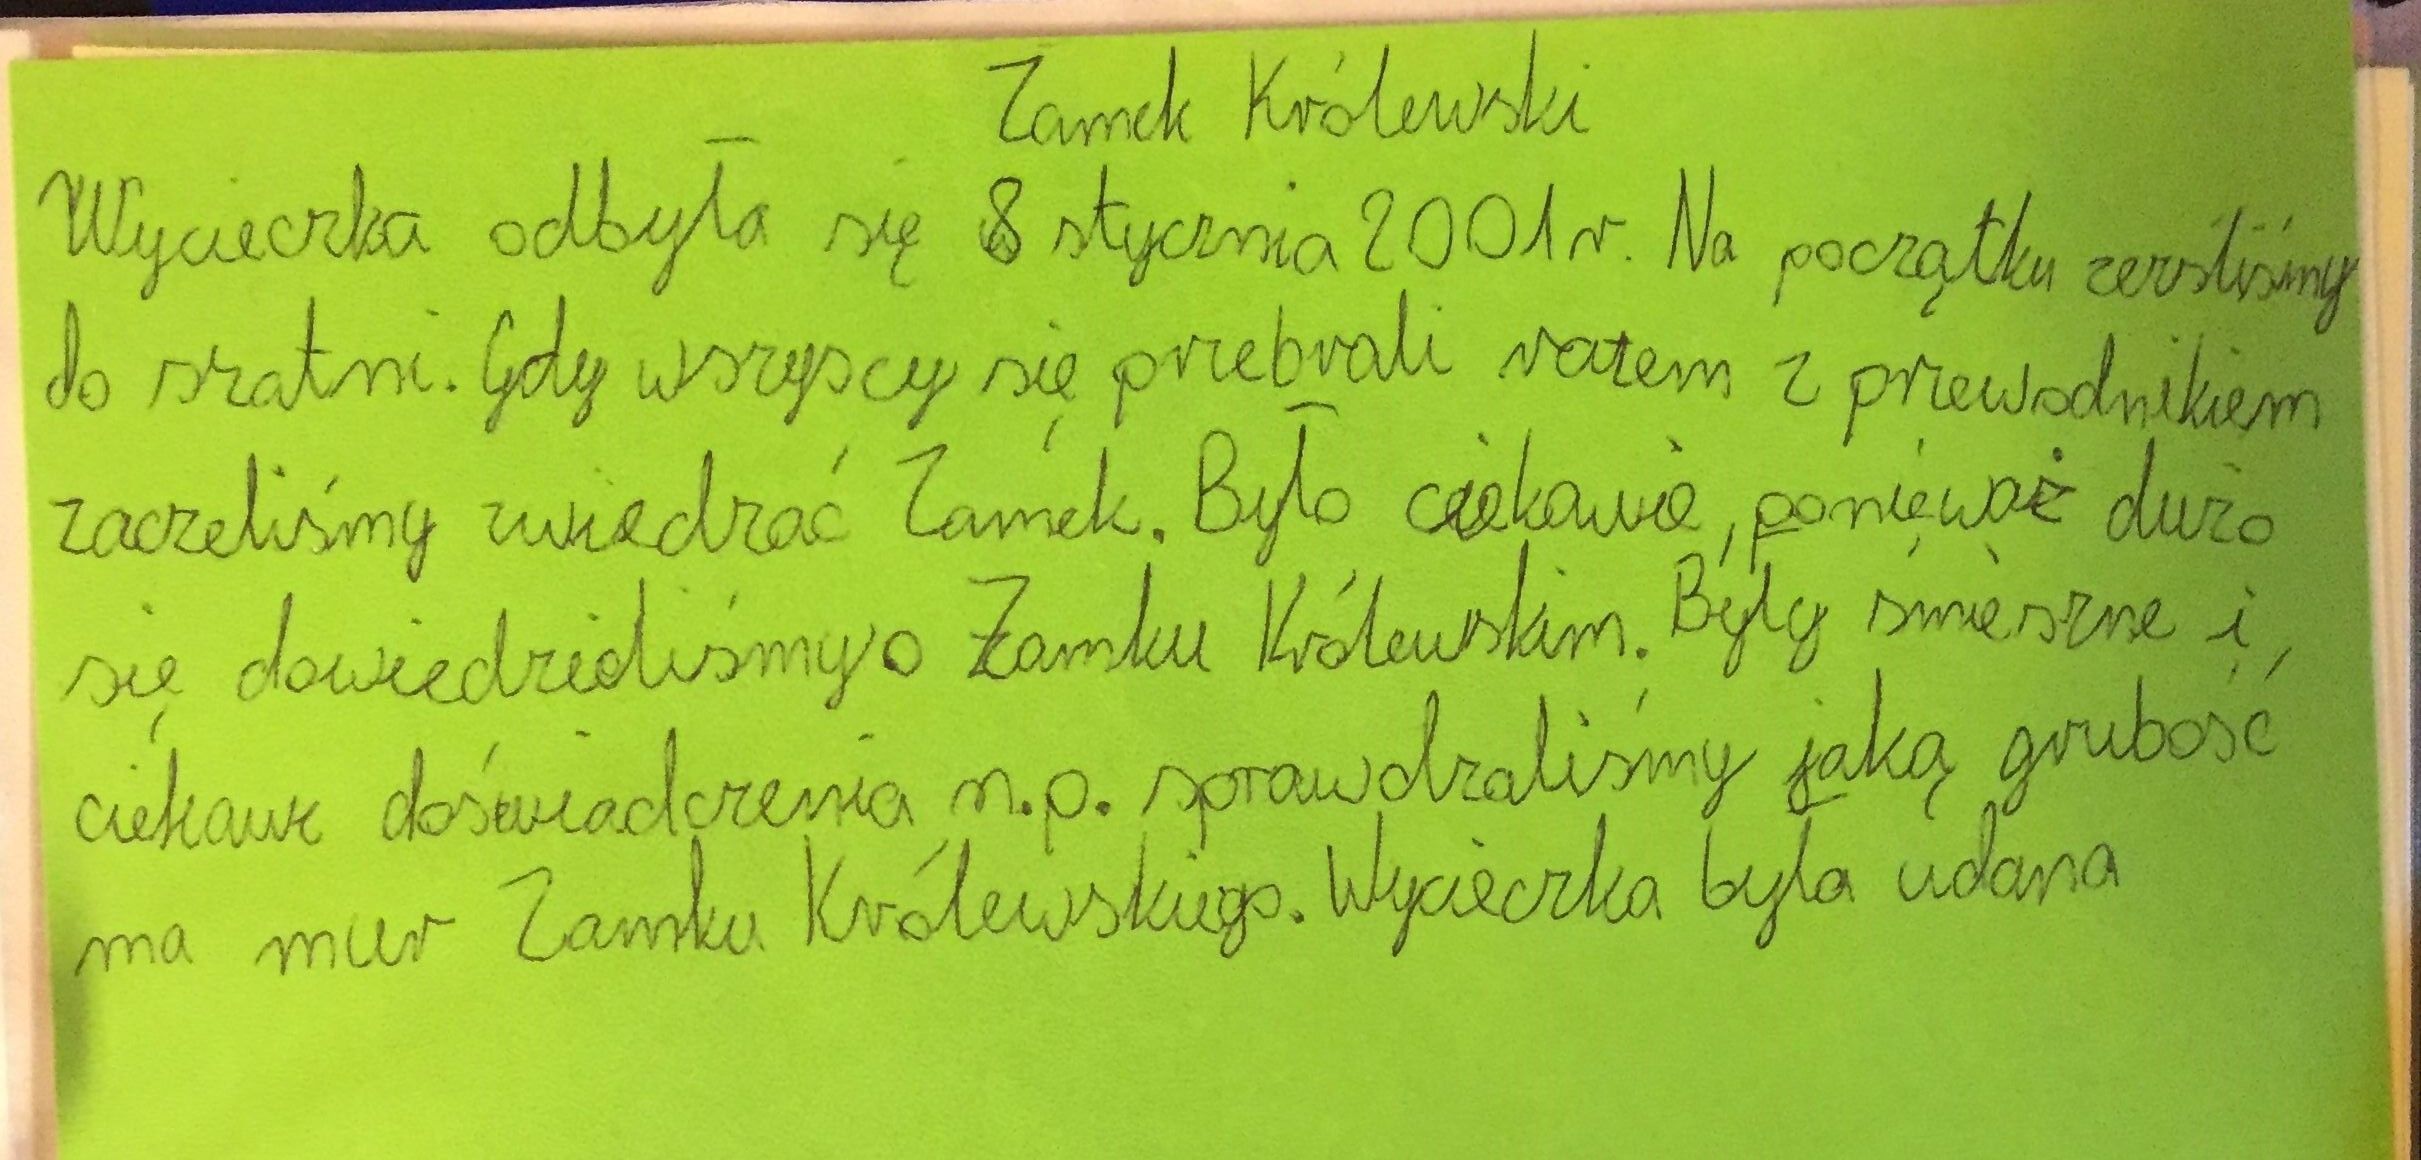 Zamek Królewski
Wycieczka odbyła się 8 stycznia 2001 r. Na początku zerśliśmy
do szatni. Gdy wszyscy się przebrali razem z przewodnikiem
zaczeliśmy zwiedzać Zamek. Było ciekawie, ponieważ dużo
się dowiedzieliśmy o Zamku Królewskim. Były śmieszne i
ciekawe doświadczenia n.p. sprawdzaliśmy jaką grubość
ma mur Zamku Królewskiego. Wycieczka była udana